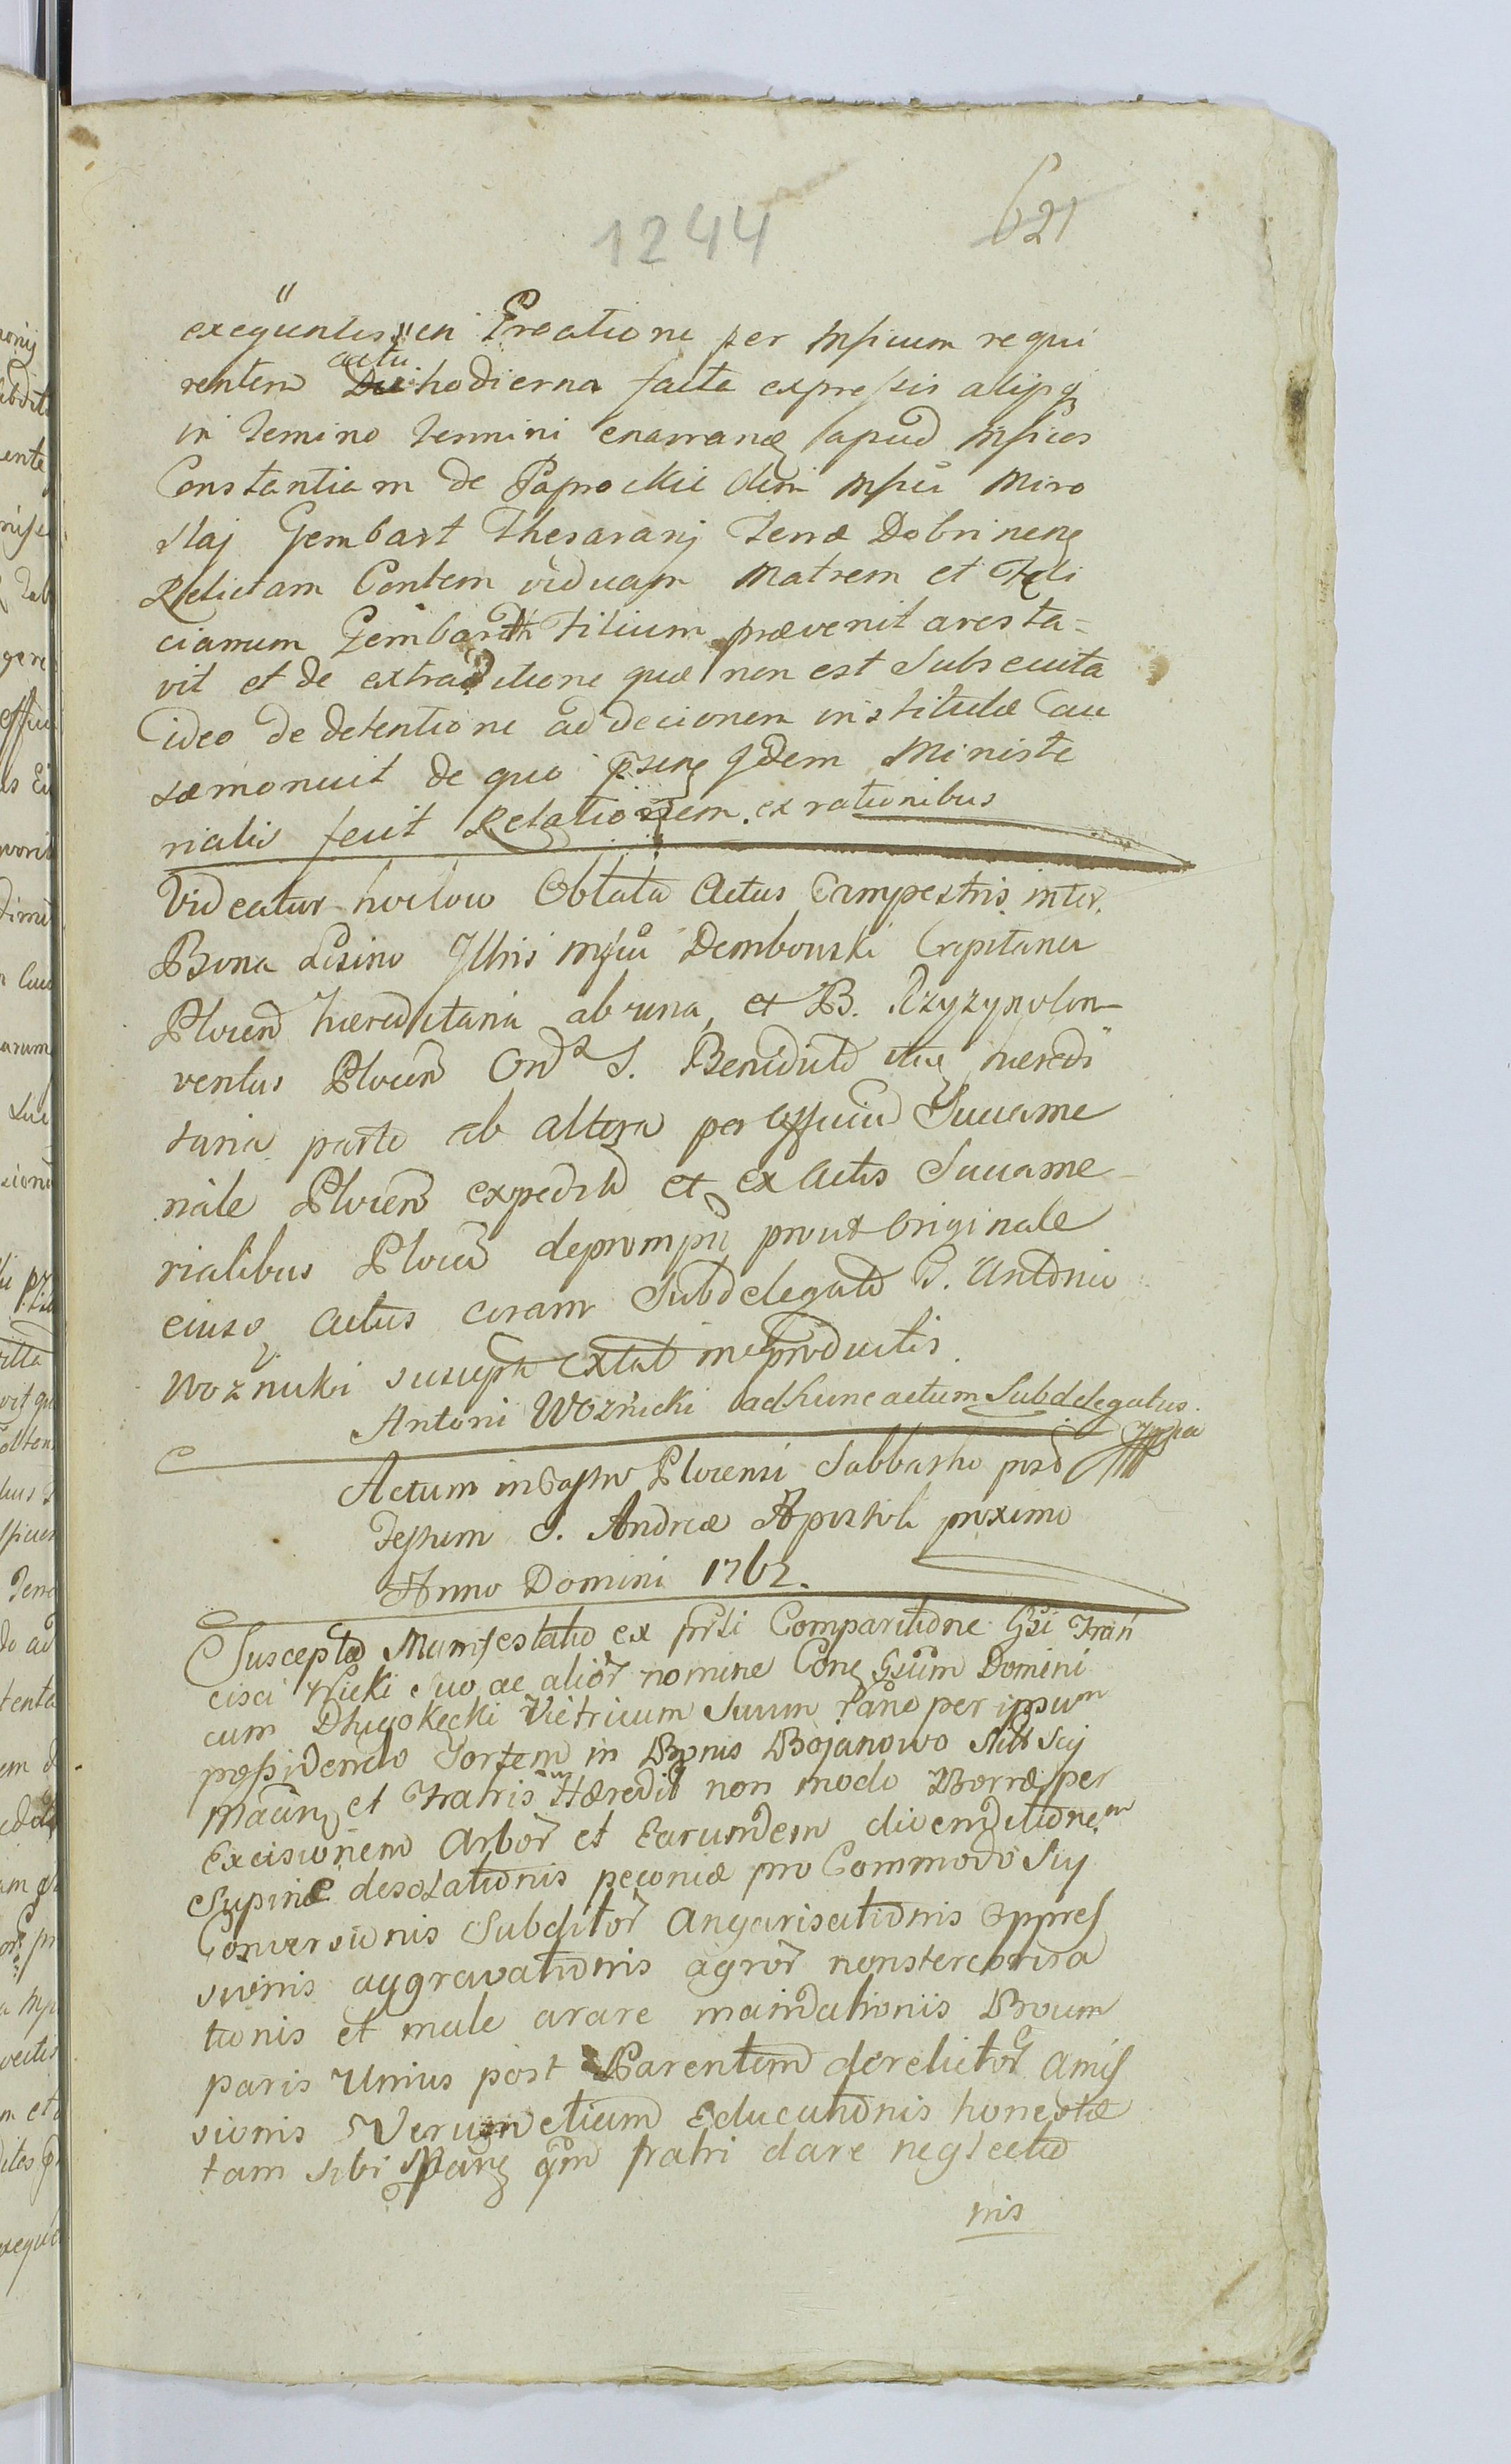 1244
621
exequentis en Proatione per Mficum requi
rentem actu hodierna facta expressis alijsq
in Temino Termini enarranq apud Mficos
Constantiam de Paprockie olim Mfici Miro
slaj Gembart Thesararij Terræ Dobrinenq
Relictam Contem viduam Matrem et Feli
cianum Gembarth Filium prævenit aresta=
vit et de extraditione quæ non est Subsecuta
ideo de detentione ad decionem institutæ Cau
sæ monuit de quo psenq qdem Ministe
rialis fecit Relationem. ex rationibus
Videatur hocloco Oblata Actus Campestris inter
Bona Lisino Illris Mfici Dembowski Capitanei
Plocen hæreditaria ab una, et B.
ventus Plocen Ord S. Benedicti itq hæredi
taria parte ab altera per Officiu Succame
riale Plocen expedit et ex Actis Succame
rialibus Plocen deprompti prout Originale
eiusq Actus coram Subdelegato G. Antonio
Woznicki suscepta extat in productis
Antoni Woźnicki ad hunc actum Subdelegatus.
Actum in Castro Plocensi Sabbatho post
Festum S. Andreæ Apostoli proximo
Anno Domini 1762.
Suscepta Manifestatio ex prsti Comparitione Gsi Fran
cisci Wicki suo ac alior nomine Conq Gsum Domini
cum Długokęcki Vietricum Suum rane per ipsum
possidendo Sortem in Bonis Bojanowo sibi Scij
et Fratris Hæredit non modo Borræ per
Excisionem Arbor et Earumdem divenditionem
Supinæ desolationis peconiæ pro Commodo Sui
Conversionis Subditor Angarisationis Oppres
sionis aggravationis agror nonstercorisa
tionis et male arare mandationis Boum
paris Unius post Parentem derelictor Amis
sionis Verum etiam Educationis honestæ
tam sibi Manq qm fratri dare neglectio
nis